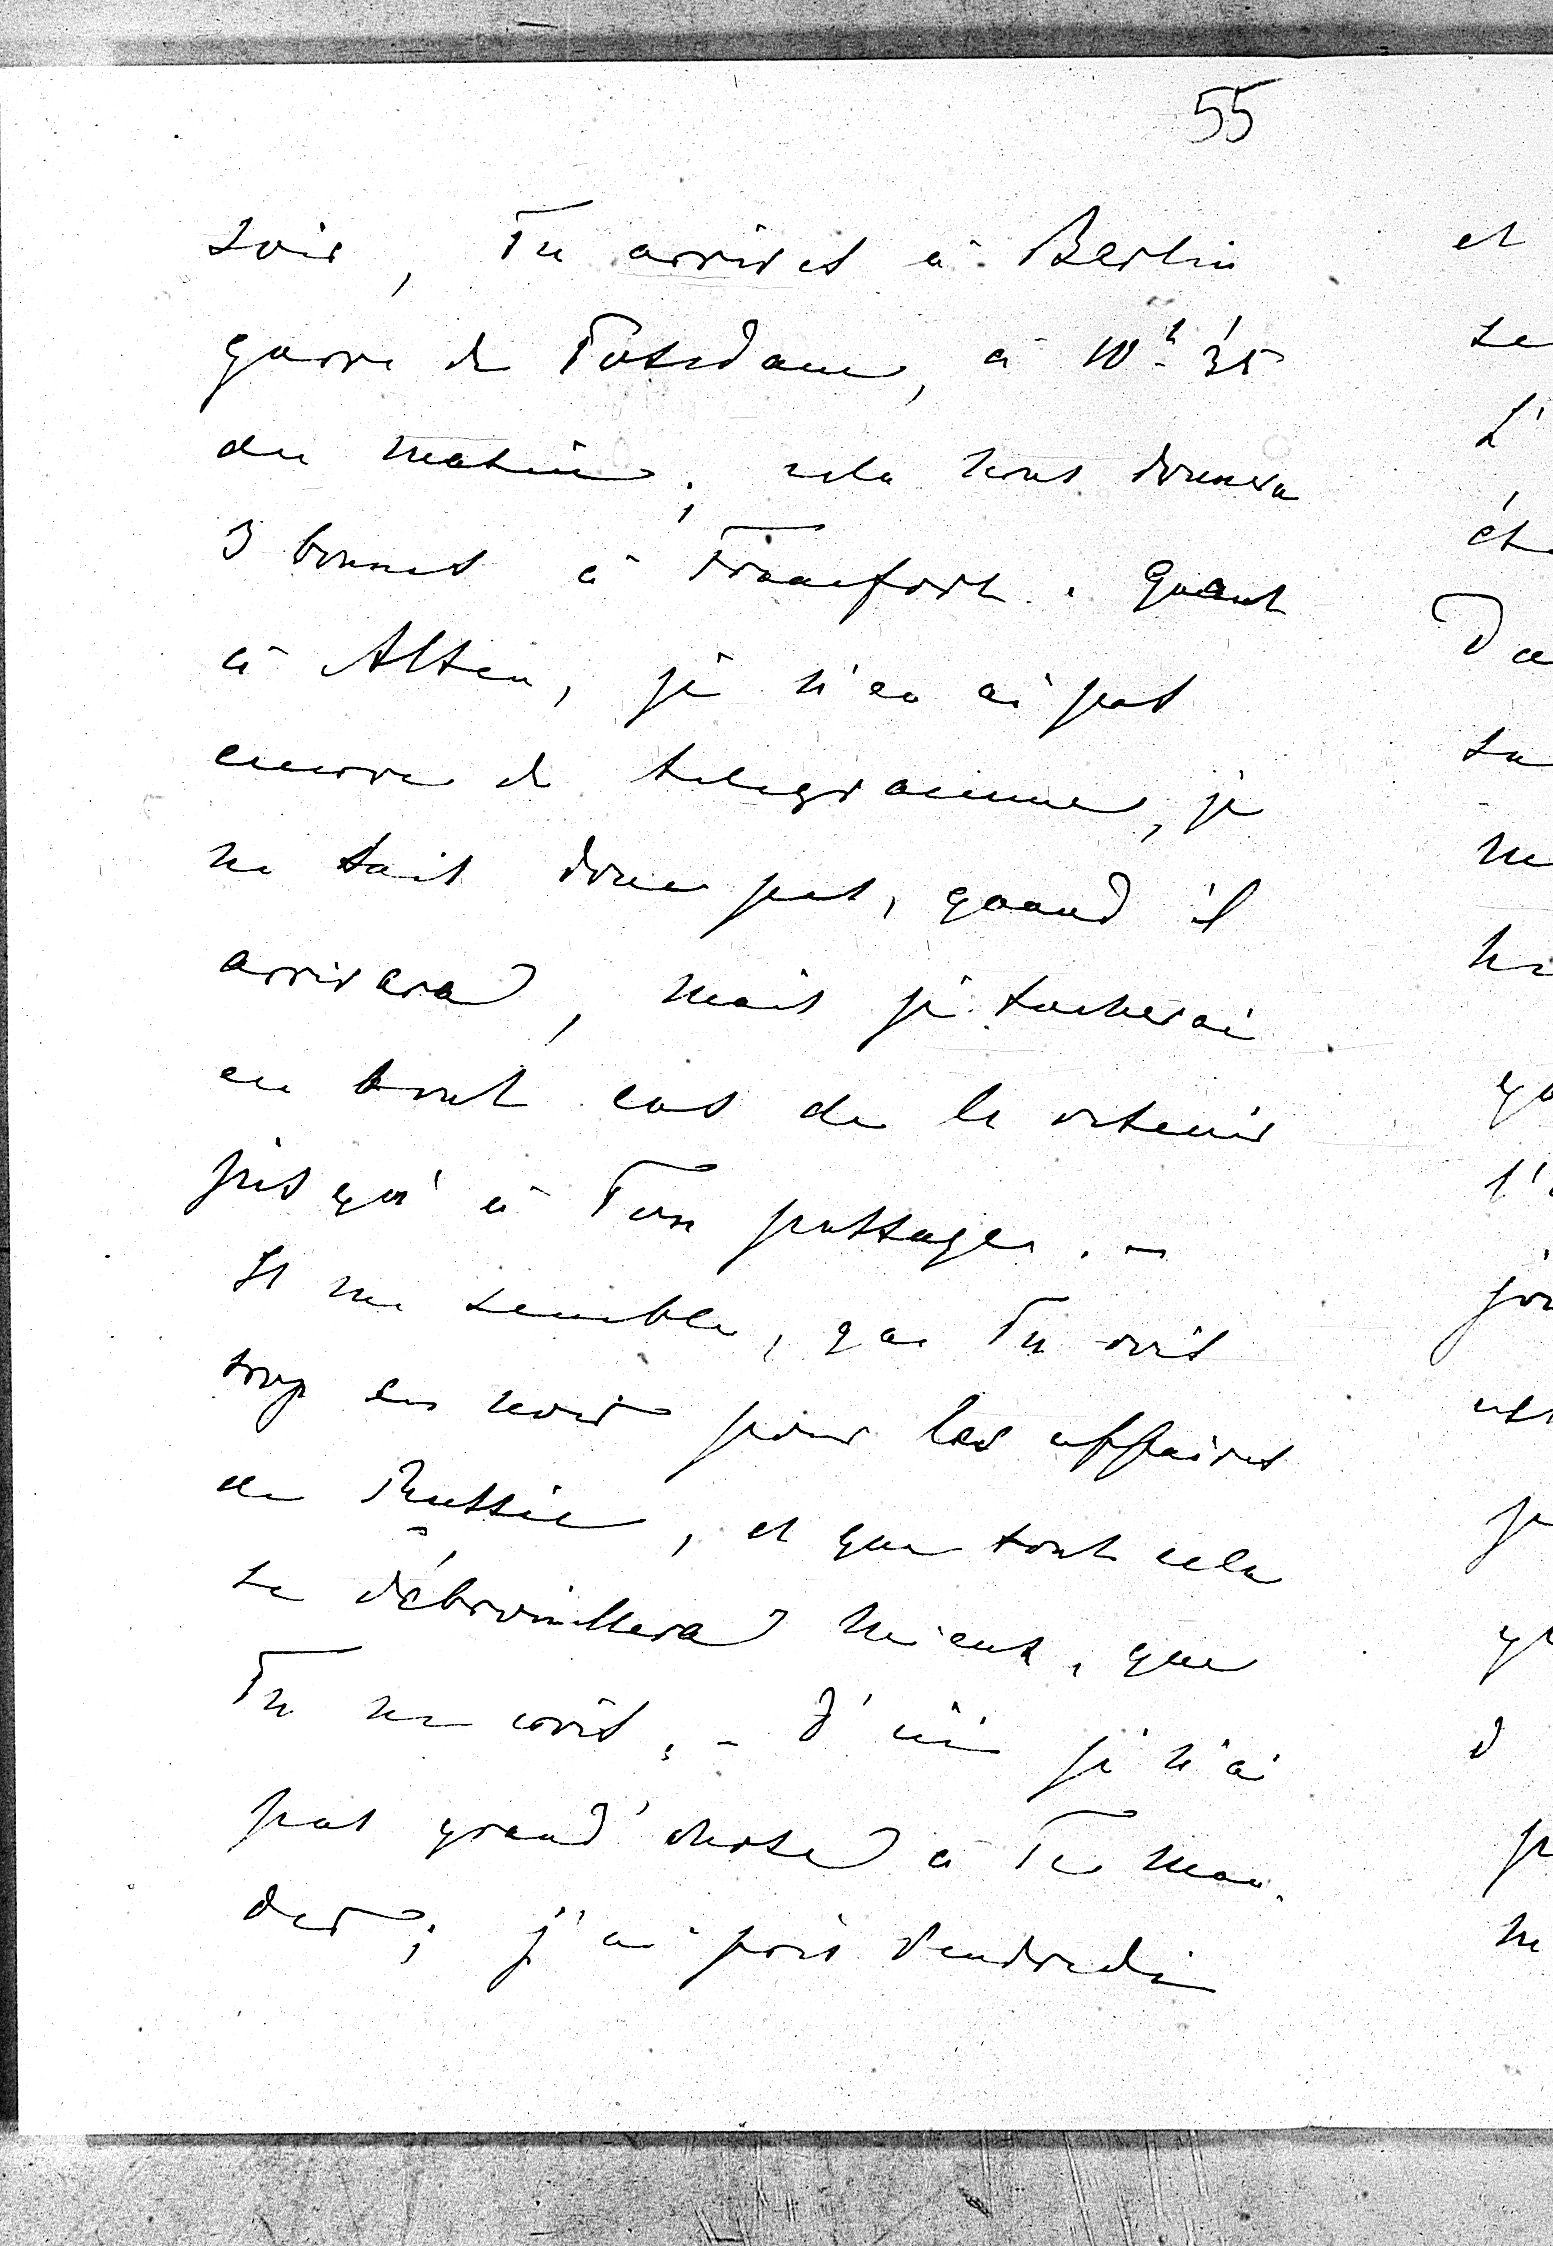 55
soir, Tu arrives à Berlin
garre de Potsdam, à 10h 35
du matin; cela nous donnera
3 bonnes à Francfort. Quant
à Alten, je n'en ai pas
encore de telegramme, je
ne sais donc pas, quand il
arrivera, mais je tacherai
en tout cas de le retenir
jusqu'à Ton passage. –
Il me semble, que Tu vois
trop en noir pour les affaires
de Russie, et que tout cela
se débrouillera mieux, que
Tu ne crois. – D'ici je n'ai
pas grand'chose à Te man-
der; j'ai pris Vendredi
et
se
L'
Da
sa
ne
qu
l'
d